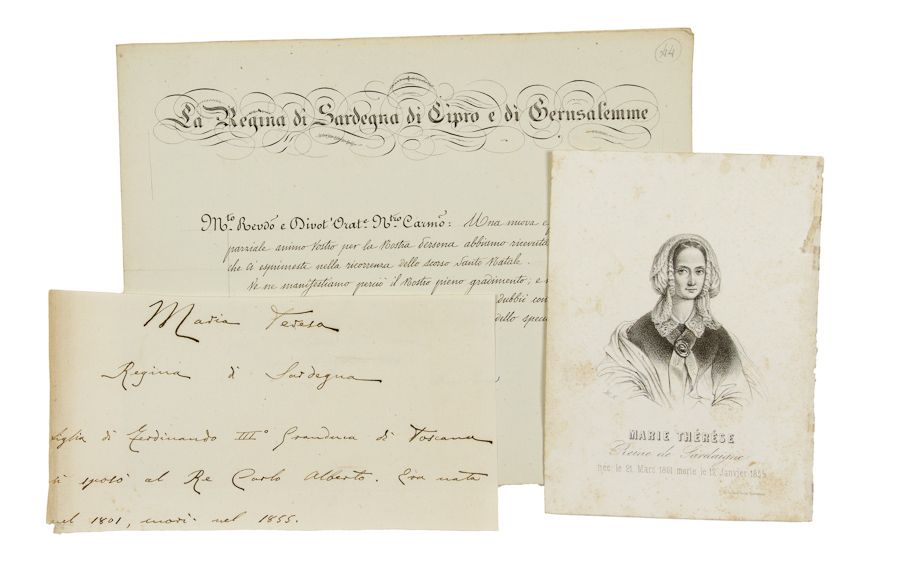 44
La Regina di Sardegna di Cipro e di Gerusalemme
M.to Revdo e Divot' Orat.e N.tro Carmo: Una nuova
parziale animo Vostro per la Nostra Persona abbiamo ricevuta
che ci esprimeste nella ricorrenza dello scorso Santo Natale.
Ve ne manifestiamo perciò il Nostro pieno gradimento; e
dubbii con
dello spec
Maria Teresa
Regina di Sardegna
figlia di Ferdinando III° Granduca di Toscana
si sposò al Re Carlo Alberto. Era nata
nel 1801, morì nel 1855.
MARIE THÉRÈSE
Reine de Sardaigne
née le 21 Mars 1801 morte le 12 Janvier 1855